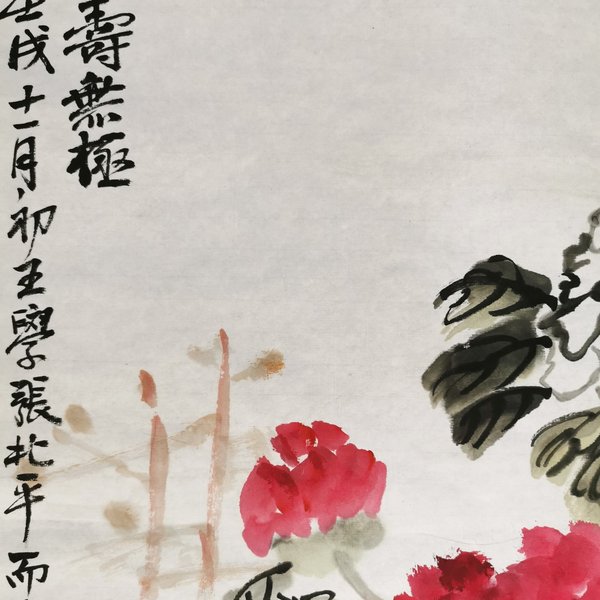 壽無極
壬戌十一月初王學張孔平而